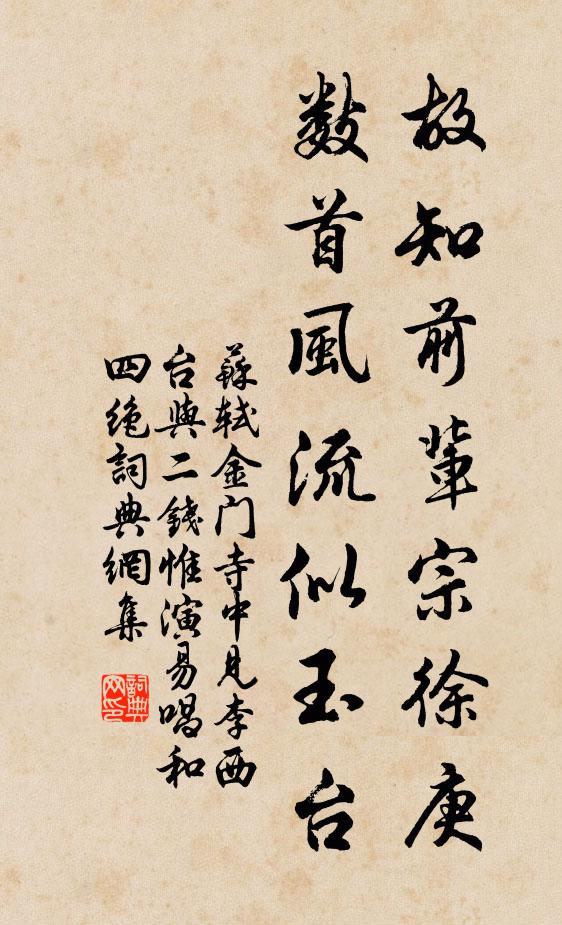 故知前輩宗徐庾
數首風流似玉台
蘇軾金门寺中見李西
台與二錢惟演易唱和
四絶詞典網集
詞典
网印